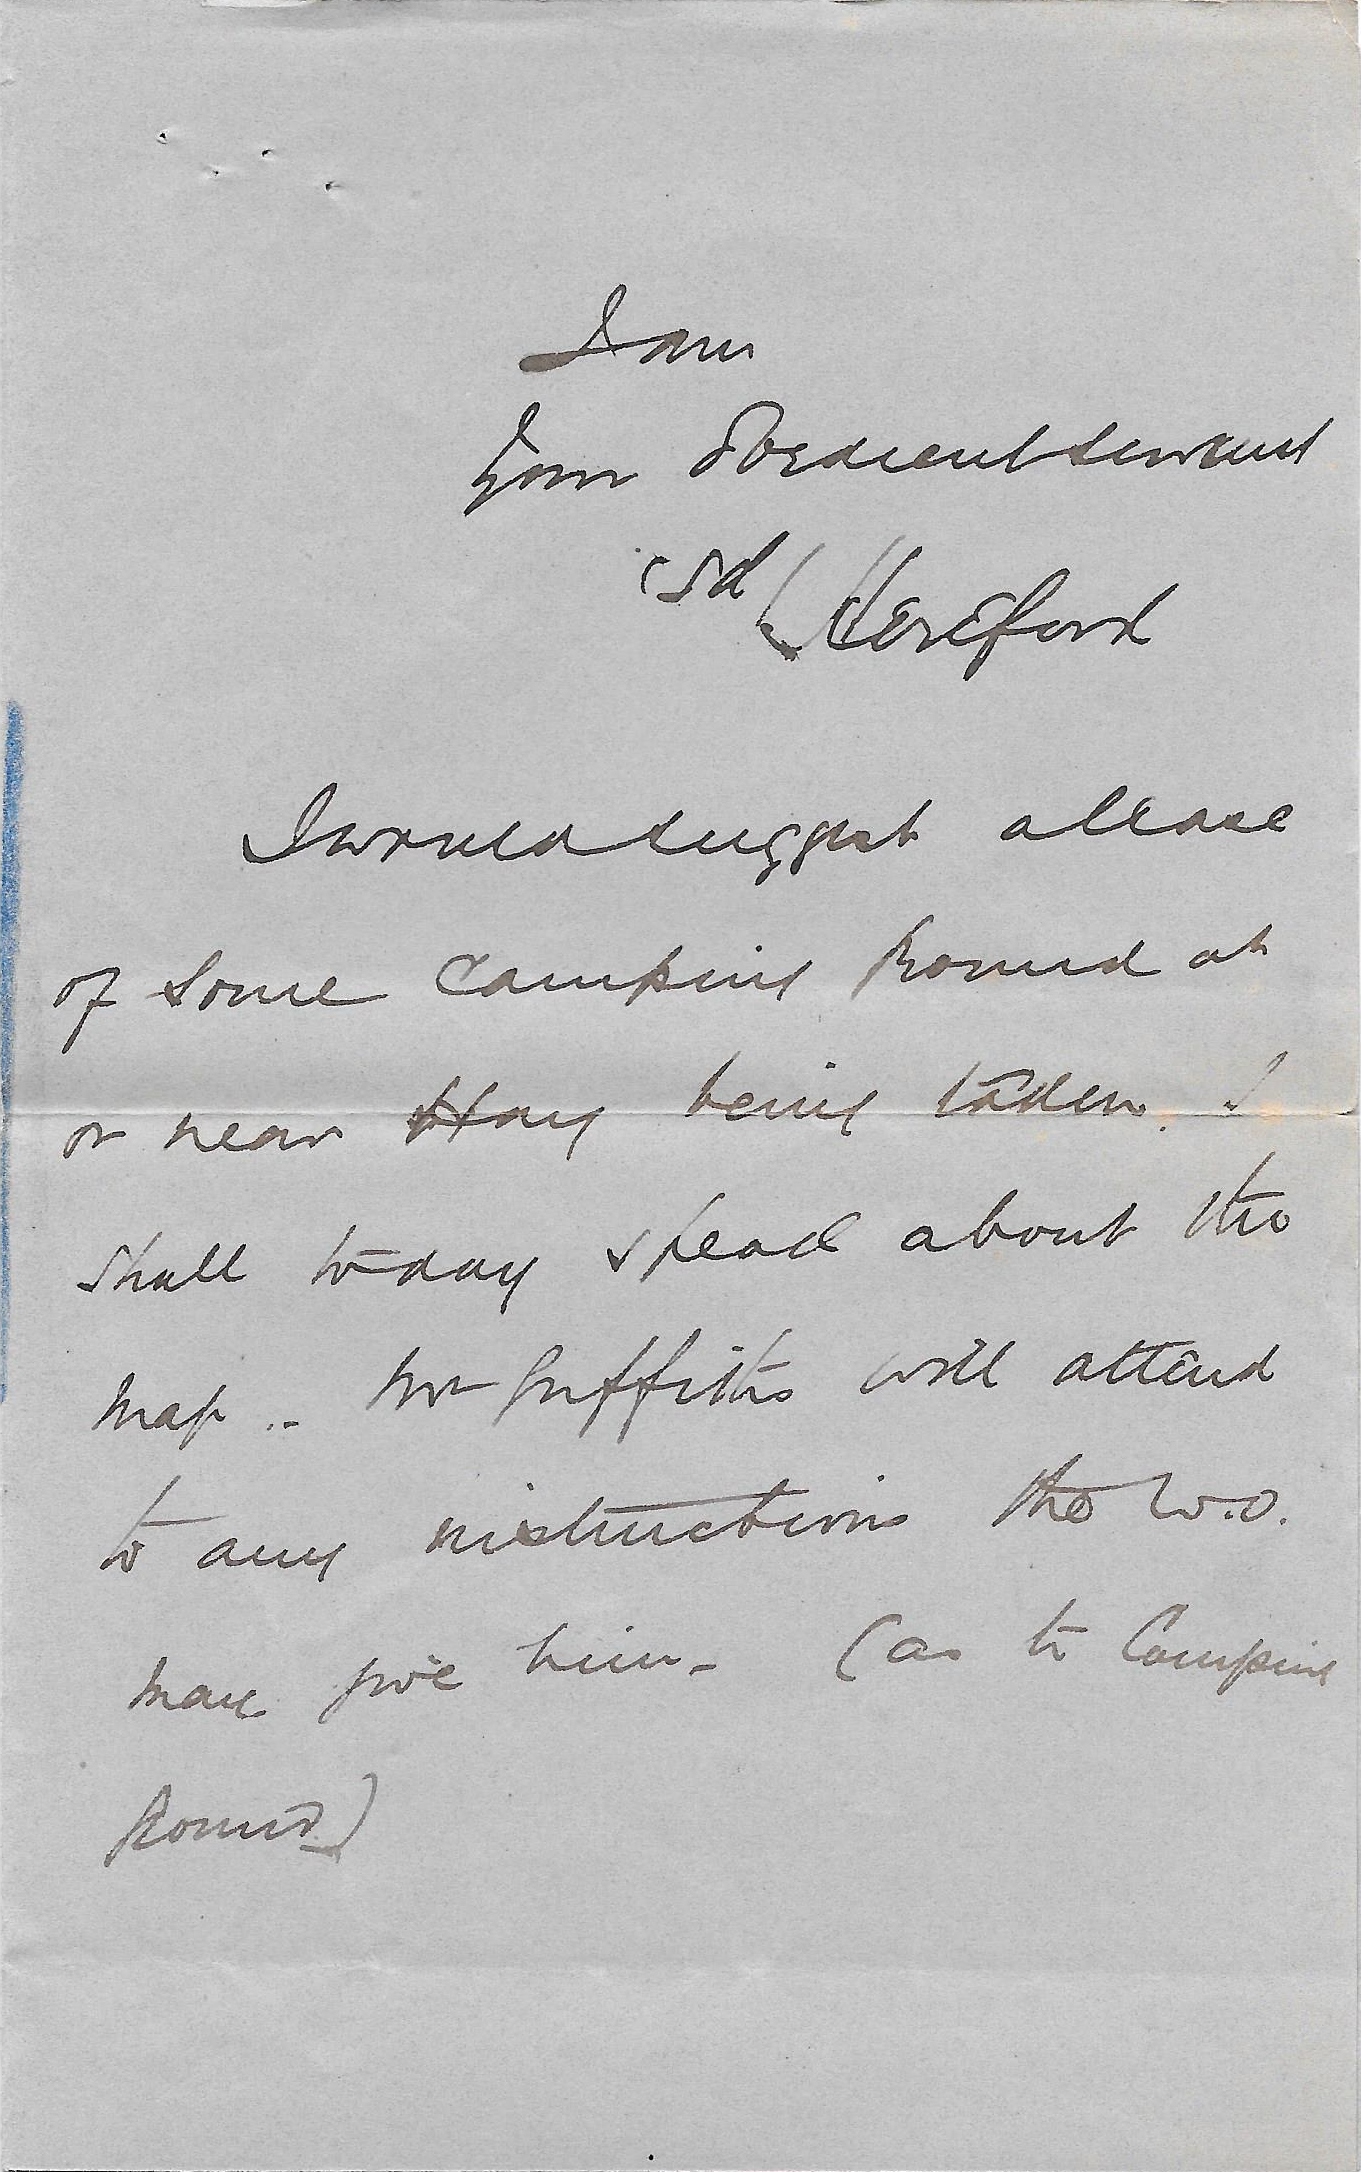 I am
Your Obedient Servant
(sd) Hereford
I would suggest a lease
of some Camping Ground at
or near Hay being taken. I
shall to-day speak about the
Map .. Mr Griffiths will attend
to any instructions the W.O.
may give him - (as to Camping
Ground)